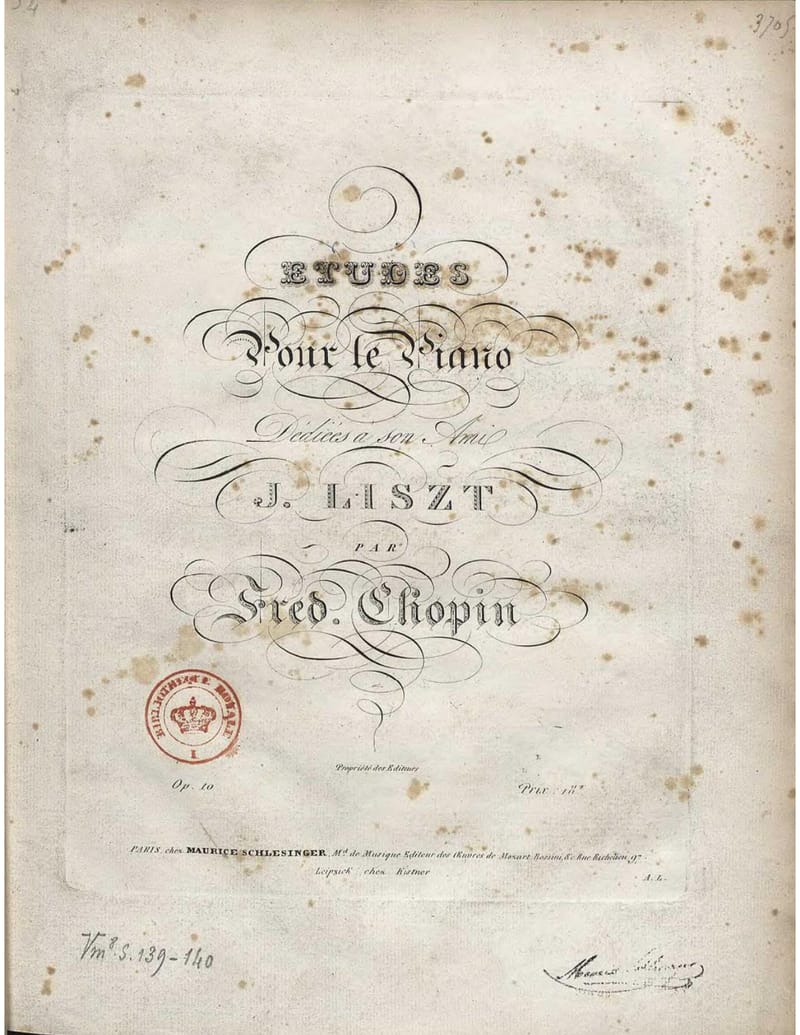 34
3705
ETUDES
Pour le Piano
Dédiées à son Ami
J. LISZT
PAR
Fred. Chopin
BIBLIOTHEQUE ROYALE
I
Propriété des Editeurs
Op. 10
Prix : 18f
PARIS, chez MAURICE SCHLESINGER, Md. de Musique Editeur des Œuvres de Mozart, Rossini, &c. Rue Richelieu, 97.
Leipzick, chez Kistner
A. L.
Vm8. S. 139-140
Maurice Schlesinger